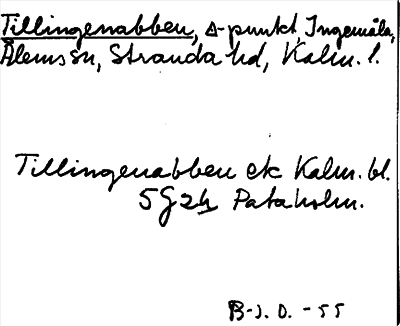 Tillingenabben, Δ-punkt, Ingemåla,
Ålems sn, Stranda hd, Kalm. l.
Tillingenabben ek Kalm. bl.
5G2h Pataholm.
B-J. O. -55